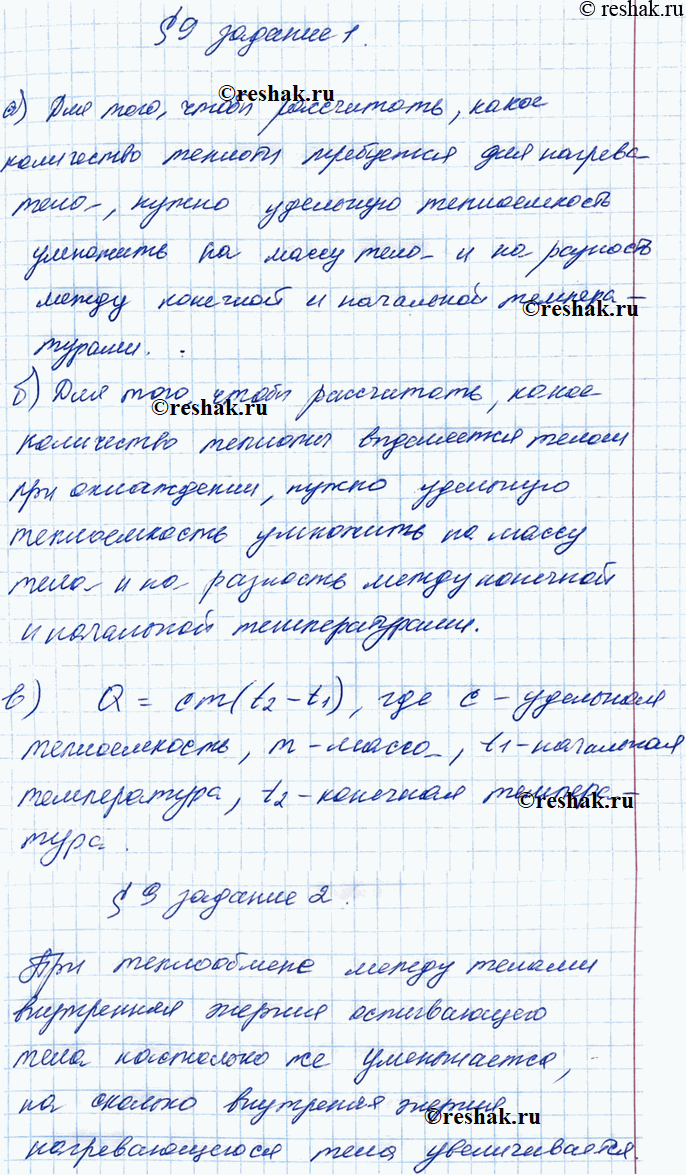 © reshak.ru
§ 9 задание 1.
©reshak.ru
а) Для того, чтобы рассчитать, какое
количество теплоты требуется для нагрева
тела, нужно удельную теплоемкость
умножить на массу тела и на разность
между конечной и начальной темпера-
©reshak.ru
турами.
б) Для того, чтобы рассчитать, какое
©reshak.ru
количество теплоты выделяется телом
при охлаждении, нужно удельную
теплоемкость умножить на массу
тела и на разность между конечной
и начальной температурами.
в) Q = cm(t2-t1), где c - удельная
теплоемкость, m - масса, t1 - начальная
температура, t2 - конечная темпера-
©reshak.ru
тура.
§ 9 задание 2.
При теплообмене между телами
внутренняя энергия остывающего
тела настолько же уменьшается,
на сколько внутреняя энергия
©reshak.ru
нагревающегося тела увеличивается.